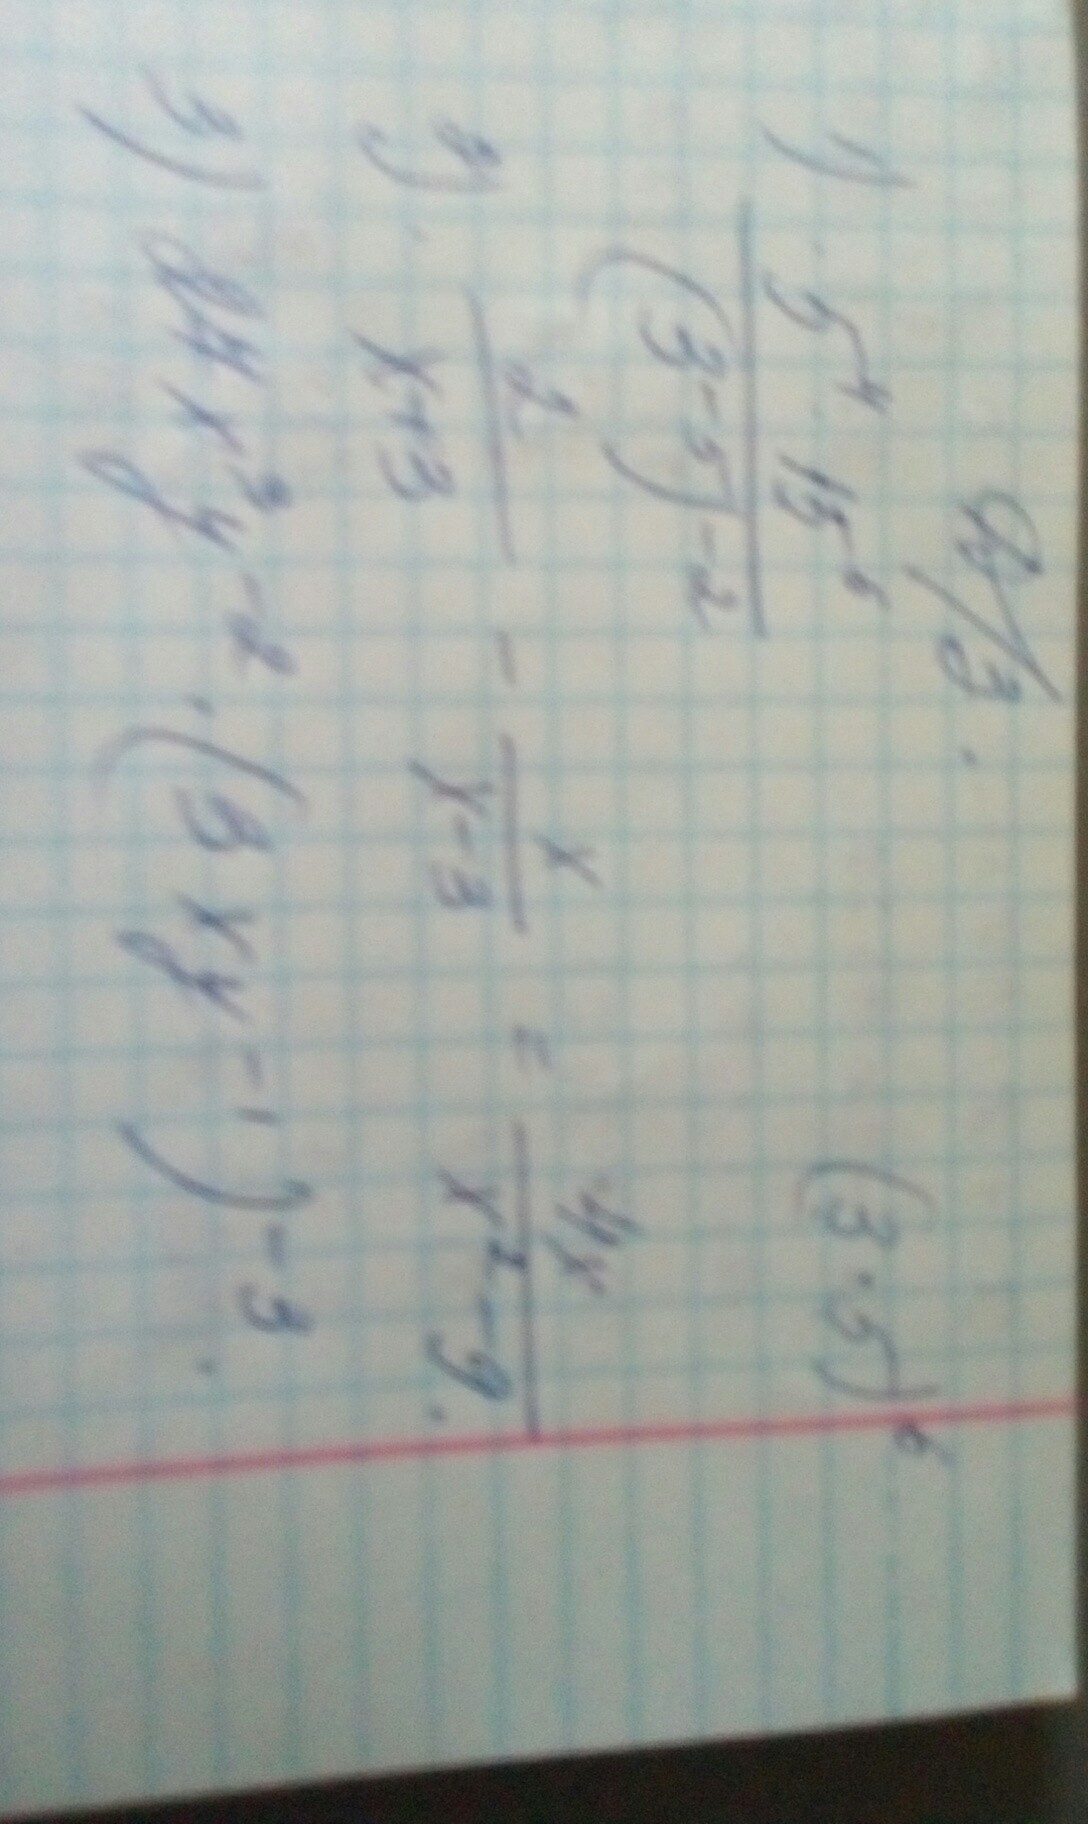 Д/З.
1) 5⁴ · 15⁻⁶ / (3⁻⁵)⁻² (3·5)⁶
2) 2/(x+3) - x/(x-3) = 4x/(x²-9).
3) 24x³y⁻² · (3xy⁻¹)⁻³.